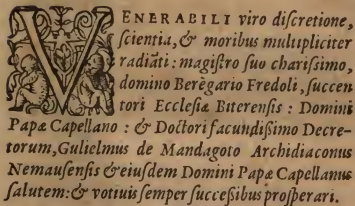 VENERABILI viro diſcretione,
ſcientia, & moribus multipliciter
radiãti: magiſtro ſuo chariſimo,
domino Berẽgario Fredoli, ſuccen
tori Eccleſiæ Biterenſis: Domini
Papæ Capellano: & Doctori facundiſimo Decre-
torum, Gulielmus de Mandagoto Archidiaconus
Nemauſenſis & eiuſdem Domini Papæ Capellanus
ſalutem: & votiuis ſemper ſucceſsibus proſperari.